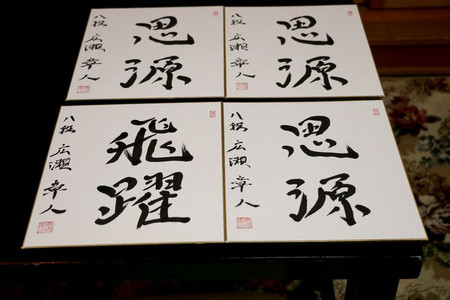 思源
八段 広瀬章人
思源
八段 広瀬章人
飛躍
八段 広瀬章人
思源
八段 広瀬章人